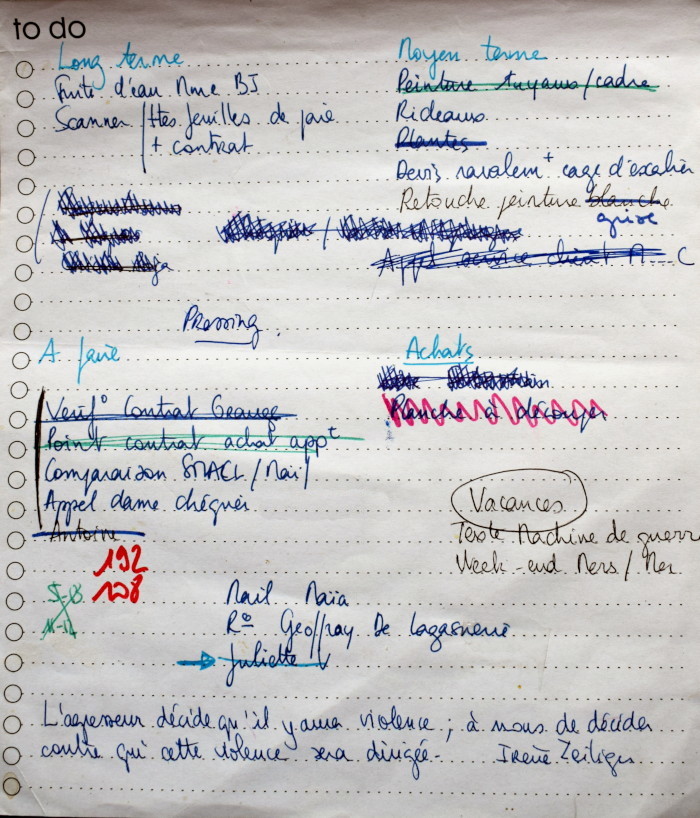 to do
Long terme
Fuite d'eau Mme BJ
Scanner / ttes feuilles de paie
+ contrat
Moyen terme
Peinture tuyaux/cadre
Rideaux
Plantes
Devis ravalem^t cage d'escalier
Retouche peinture blanche
grise
App service client
Pressing
A faire
Verif° Contrat
Point contrat achat app^t
Comparaison SMACL/Maif
Appel dame chéquier
Antoine
Achats
Planche à découper
Vacances
Texte Machine de guerre
Week-end Mers/Mer
192
128
Mail Maïa
R° Geoffroy De Lagasnerie
Juliette V
L'agresseur décide qu'il y aura violence ; à nous de décider
contre qui cette violence sera dirigée. Irene